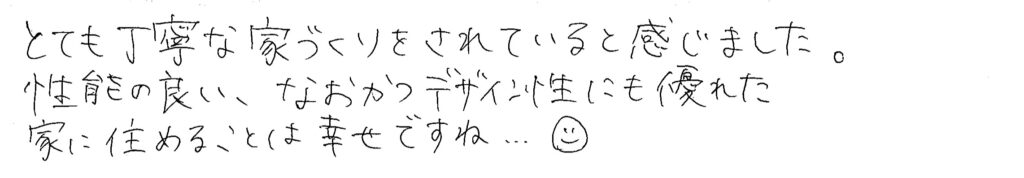 とても丁寧な家づくりをされていると感じました。
性能の良い、なおかつデザイン性にも優れた
家に住めることは幸せですね…